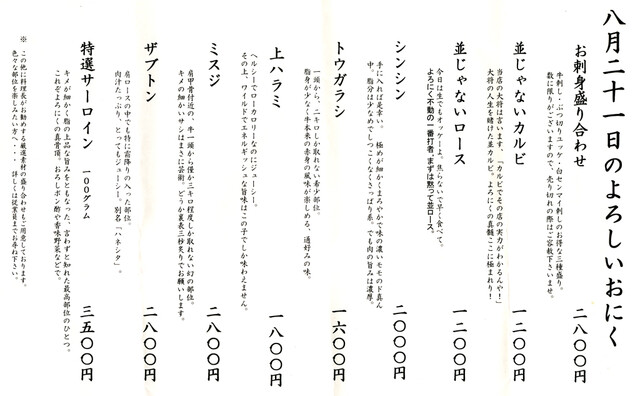 八月二十一日のよろしいおにく
お刺身盛り合わせ 二八〇〇円
牛刺し・ぶつ切りユッケ・白センマイ刺しのお得な三種盛り。
数に限りがございますので、売り切れの際はご容赦下さいませ。
並じゃないカルビ 一二〇〇円
当店の大将は言います。「カルビでその店の実力がわかるんや！」
大将の人生を賭けた並カルビ。よろにくの真髄ここに極まれり！
並じゃないロース 一二〇〇円
今日は生でもオッケーよ。焦らないで早く食べて。
よろにく不動の一番打者、まずは黙って並ロース。
シンシン 二〇〇〇円
手に入れば是幸い。極めが細かくまろやかで味の濃いモモのド真ん
中。脂分は少なめでしつこくなくさっぱり系。でも肉の旨みは濃厚。
トウガラシ 一六〇〇円
一頭から、二キロしか取れない希少部位。
脂身が少なく牛本来の赤身の風味が楽しめる、通好みの味。
上ハラミ 一八〇〇円
ヘルシーでローカロリーなのにジューシー。
その上、ワイルドでエネルギッシュな旨味はこの子でしか味わえません。
ミスジ 二八〇〇円
肩甲骨付近の、牛一頭から僅か三キロ程度しか取れない幻の部位。
キメの細かいサシはまさに芸術。どうか裏表三秒炙りでお願いします。
ザブトン 二八〇〇円
肩ロースの中でも特に霜降りの入った部位。
肉汁たっぷり、とってもジューシー。別名「ハネシタ」。
特選サーロイン 一〇〇グラム 三五〇〇円
キメが細かく脂の上品な旨みをともなった、言わずと知れた最高部位のひとつ。
これぞよろにくの真骨頂。おろしポン酢や香味野菜などで。
※ この他に料理長がお勧めする厳選素材の盛り合わせもご用意しております。
色々な部位を楽しみたい方へ・・・詳しくは従業員までお尋ね下さい。